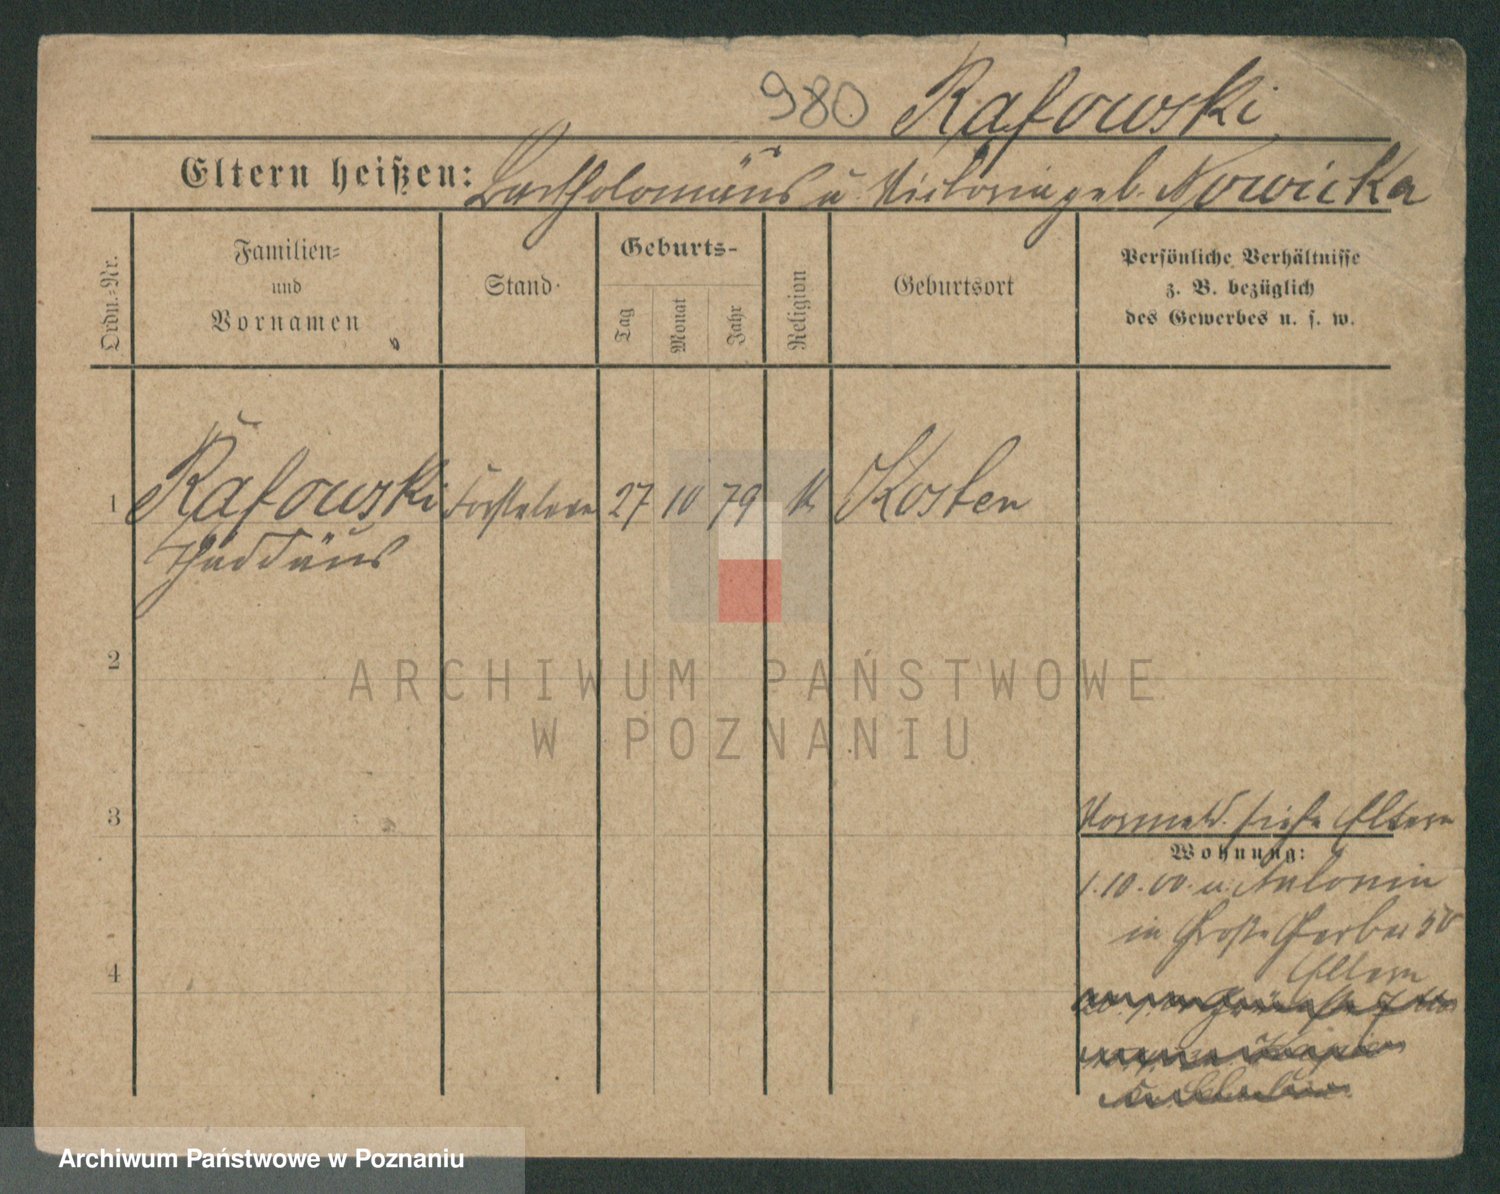 980 Rafowski
Eltern heißen: Bartholomäus u. Victoria geb. Nowicka
Ordn.-Nr.
Familien-
und
Vornamen
Stand
Geburts-
Tag
Monat
Jahr
Religion
Geburtsort
Persönliche Verhältnisse
z. B. bezüglich
des Gewerbes u. s. w.
1 Rafowski 27 10 79 k Kosten
Thaddäus
2
ARCHIWUM PAŃSTWOWE
W POZNANIU
3
Vormeld. siehe Eltern
Wohnung:
1.10.00 u. Antonin
in Große Gerber 50
Eltern
4
Archiwum Państwowe w Poznaniu